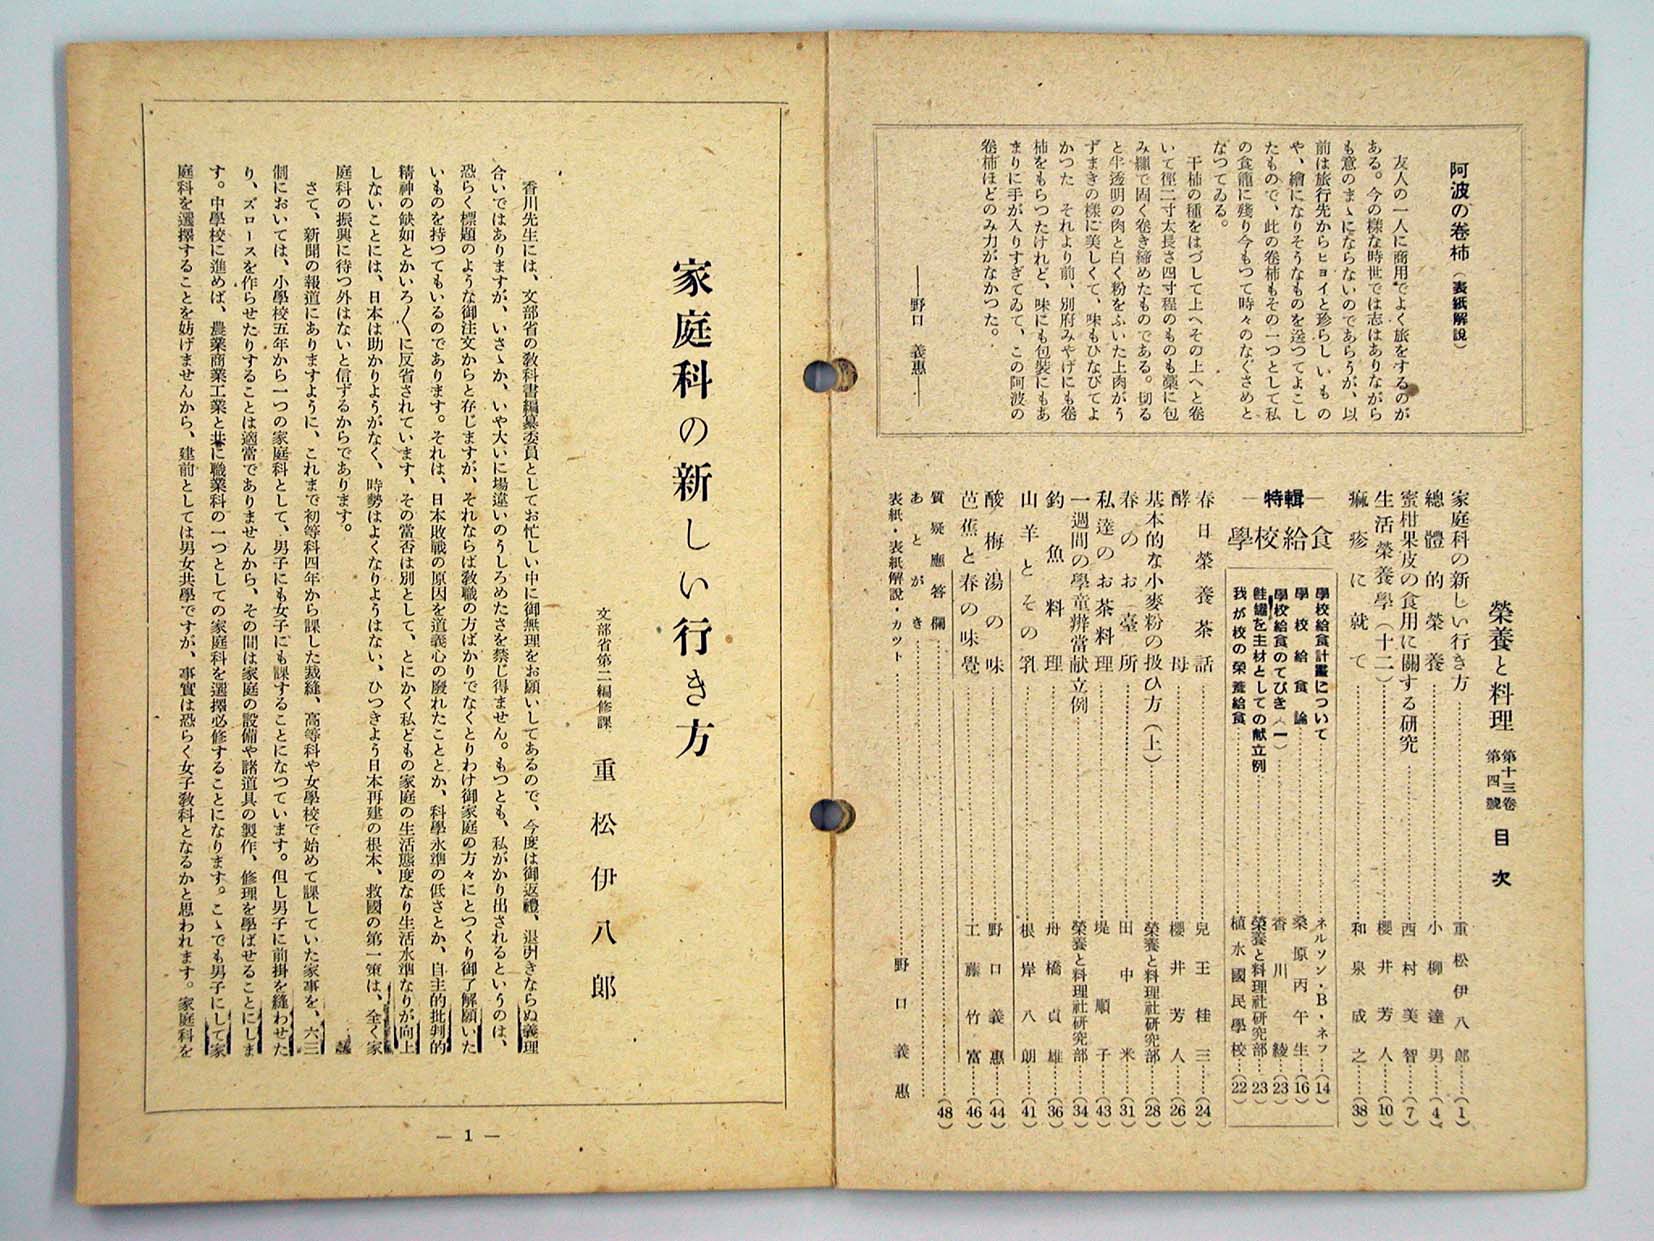 阿波の卷柿(表紙解說)
友人の一人に商用でよく旅をするのが
ある。今の樣な時世では志はありながら
も意のまゝにならないのであらうが、以
前は旅行先からヒョイと珍らしいもの
や、繪になりそうなものを送つてよこし
たもので、此の卷柿もその一つとして私
の食龍に殘り今もつて時々のなぐさめと
なつてゐる。
干柿の種をはづして上へその上へと卷
いて徑二寸太長さ四寸程のものも藁に包
み繩で固く卷き締めたものである。切る
と半透明の肉と白く粉をふいた上肉がう
ずまきの樣に美しくて、味もひなびてよ
かつた それより前、別府みやげにも卷
柿をもらつたけれど、味にも包裝にもあ
まりに手が入りすぎてゐて、この阿波の
卷柿ほどのみ力がなかつた。
——野口 義惠——
榮養と料理 第十三卷 第四號 目次
家庭科の新しい行き方…重松伊八郞…(1)
總體的榮養…小柳達男…(4)
蜜柑果皮の食用に關する硏究…西村美智…(7)
生活榮養學(十二)…櫻井芳人…(10)
痲疹に就て…和泉成之…(38)
—特輯—
學校給食
學校給食計畫について…ネルソン・B・ネフ…(14)
學校給食論…桑原丙午生…(16)
學校給食のてびき(一)…香川綾…(23)
鮭罐を主材としての献立例…榮養と料理社硏究部…(23)
我が校の榮養給食…植水國民學校…(22)
春日榮養茶話…兒王桂三…(24)
酵母…櫻井芳人…(26)
基本的な小麥粉の扱ひ方(上)…榮養と料理社硏究部…(28)
春のお臺所…田中米…(31)
私達のお茶料理…堤順子…(43)
一週間の學童辨當献立例…榮養と料理社硏究部…(34)
釣魚料理…舟橋貞雄…(36)
山羊とその乳…根岸八朗…(41)
酸梅湯の味…野口義惠…(44)
芭蕉と春の味覺…工藤竹富…(46)
質疑應答欄…(48)
あとがき
表紙・表紙解說・カット…野口義惠
家庭科の新しい行き方
文部省第二編修課 重松伊八郞
香川先生には、文部省の敎科書編纂委員としてお忙しい中に御無理をお願いしてあるので、今度は御返禮、退引きならぬ義理
合いではありますが、いさゝか、いや大いに場違いのうしろめたさを禁じ得ません。もつとも、私がかり出されるというのは、
恐らく標題のような御注文からと存じますが、それならば敎職の方ばかりでなくとりわけ御家庭の方々にとつくり御了解願いた
いものを持つてもいるのであります。それは、日本敗戰の原因を道義心の廢れたこととか、科學水準の低さとか、自主的批判的
精神の缺如とかいろ〳〵に反省されています、その當否は別として、とにかく私どもの家庭の生活態度なり生活水準なりが向上
しないことには、日本は助かりようがなく、時勢はよくなりようはない、ひつきよう日本再建の根本、救國の第一策は、全く家
庭科の振興に待つ外はないと信ずるからであります。
さて、新聞の報道にありますように、これまで初等科四年から課した裁縫、高等科や女學校で始めて課していた家事を、六三
制においては、小學校五年から一つの家庭科として、男子にも女子にも課することになつています。但し男子に前掛を縫わせた
り、ズロースを作らせたりすることは適當でありませんから、その間は家庭の設備や諸道具の製作、修理を學ばせることにしま
す。中學校に進めば、農業商業工業と共に職業科の一つとしての家庭科を選擇必修することになります。こゝでも男子にして家
庭科を選擇することを妨げませんから、建前としては男女共學ですが、事實は恐らく女子敎科となるかと思われます。家庭科を
— 1 —